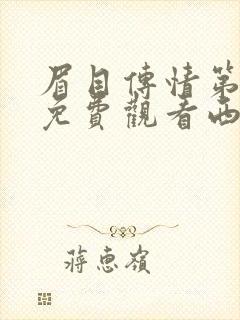 眉目傳情第
免費觀看西
蔣惠嶺